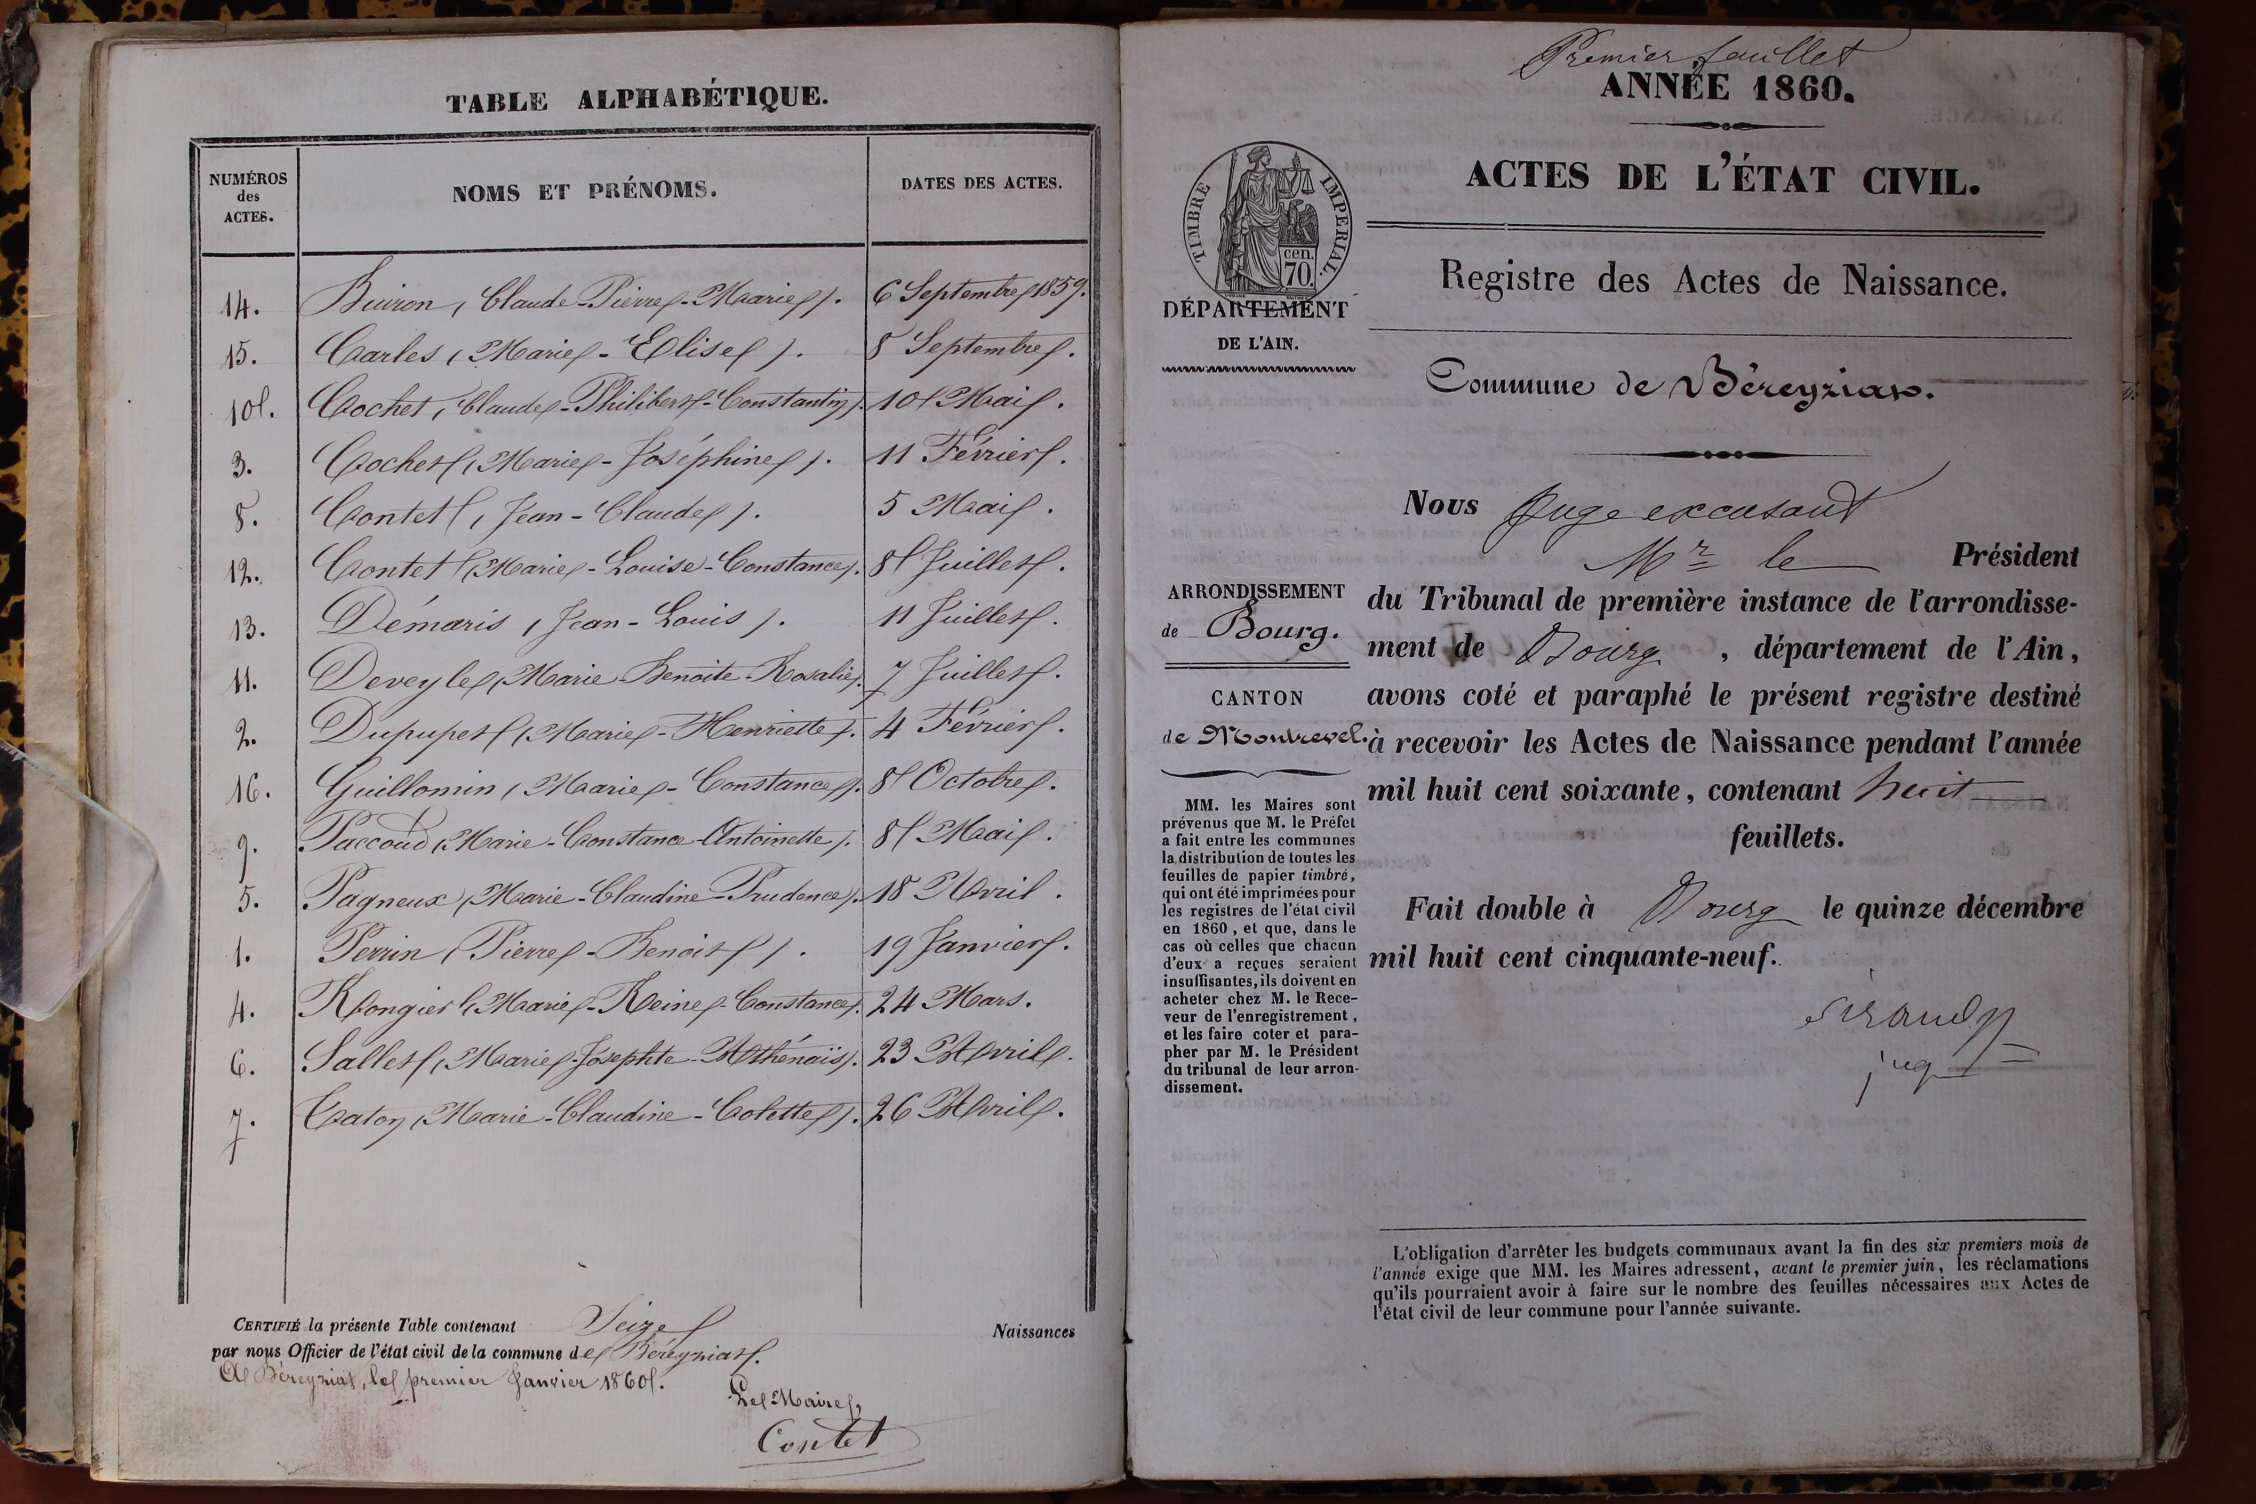 TABLE ALPHABÉTIQUE.
NUMÉROS des ACTES. NOMS ET PRÉNOMS. DATES DES ACTES.
14. Buiron, Claude-Pierre-Marie). 6 Septembre 1859.
15. Carles (Marie-Elise). 8 Septembre.
10. Cochet, Claude-Philibert-Constantin). 10 Mai.
3. Cochet (Marie-Joséphine). 11 Février.
8. Contet (Jean-Claude). 5 Mai.
12. Contet (Marie-Louise-Constance). 8 Juillet.
13. Démaris (Jean-Louis). 11 Juillet.
11. Deveyle (Marie-Benoite-Rosalie). 7 Juillet.
2. Dupupet (Marie-Henriette). 4 Février.
16. Guillomin (Marie-Constance). 8 Octobre.
9. Paccoud (Marie-Constance-Antoinette). 8 Mai.
5. Pagneux (Marie-Claudine-Prudence). 18 Avril.
1. Perrin (Pierre-Benoit). 19 Janvier.
4. Rongier (Marie-Reine-Constance). 24 Mars.
6. Sallet (Marie-Josephte-Athénaïs). 23 Avril.
7. Caton (Marie-Claudine-Colette). 26 Avril.
CERTIFIÉ la présente Table contenant Seize Naissances
par nous Officier de l'état civil de la commune de Béréyziat.
A Béreyziat, le premier Janvier 1860.
Le Maire,
Contet
Premier feuillet
ANNÉE 1860.
ACTES DE L'ÉTAT CIVIL.
TIMBRE IMPERIAL.
cen.
70.
Registre des Actes de Naissance.
DÉPARTEMENT
DE L'AIN.
Commune de Béreyziat.
Nous Juge excusant
Mr le Président
du Tribunal de première instance de l'arrondisse-
ment de Bourg, département de l'Ain,
avons coté et paraphé le présent registre destiné
à recevoir les Actes de Naissance pendant l'année
mil huit cent soixante, contenant huit
feuillets.
Fait double à Bourg le quinze décembre
mil huit cent cinquante-neuf.
juge
ARRONDISSEMENT
de Bourg.
CANTON
de Montrevel.
MM. les Maires sont
prévenus que M. le Préfet
a fait entre les communes
la distribution de toutes les
feuilles de papier timbré,
qui ont été imprimées pour
les registres de l'état civil
en 1860, et que, dans le
cas où celles que chacun
d'eux a reçues seraient
insuffisantes, ils doivent en
acheter chez M. le Rece-
veur de l'enregistrement,
et les faire coter et para-
pher par M. le Président
du tribunal de leur arron-
dissement.
L'obligation d'arrêter les budgets communaux avant la fin des six premiers mois de
l'année exige que MM. les Maires adressent, avant le premier juin, les réclamations
qu'ils pourraient avoir à faire sur le nombre des feuilles nécessaires aux Actes de
l'état civil de leur commune pour l'année suivante.